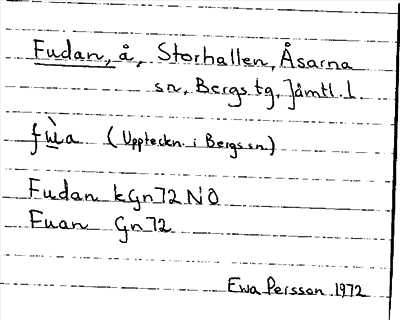 Fudan, å, Storhallen, Åsarna
sn, Bergs tg, Jämtl. l.
fù̲a (Uppteckn. i Bergs sn)
Fudan kGn72 NO
Fuan Gn72
Ewa Persson 1972